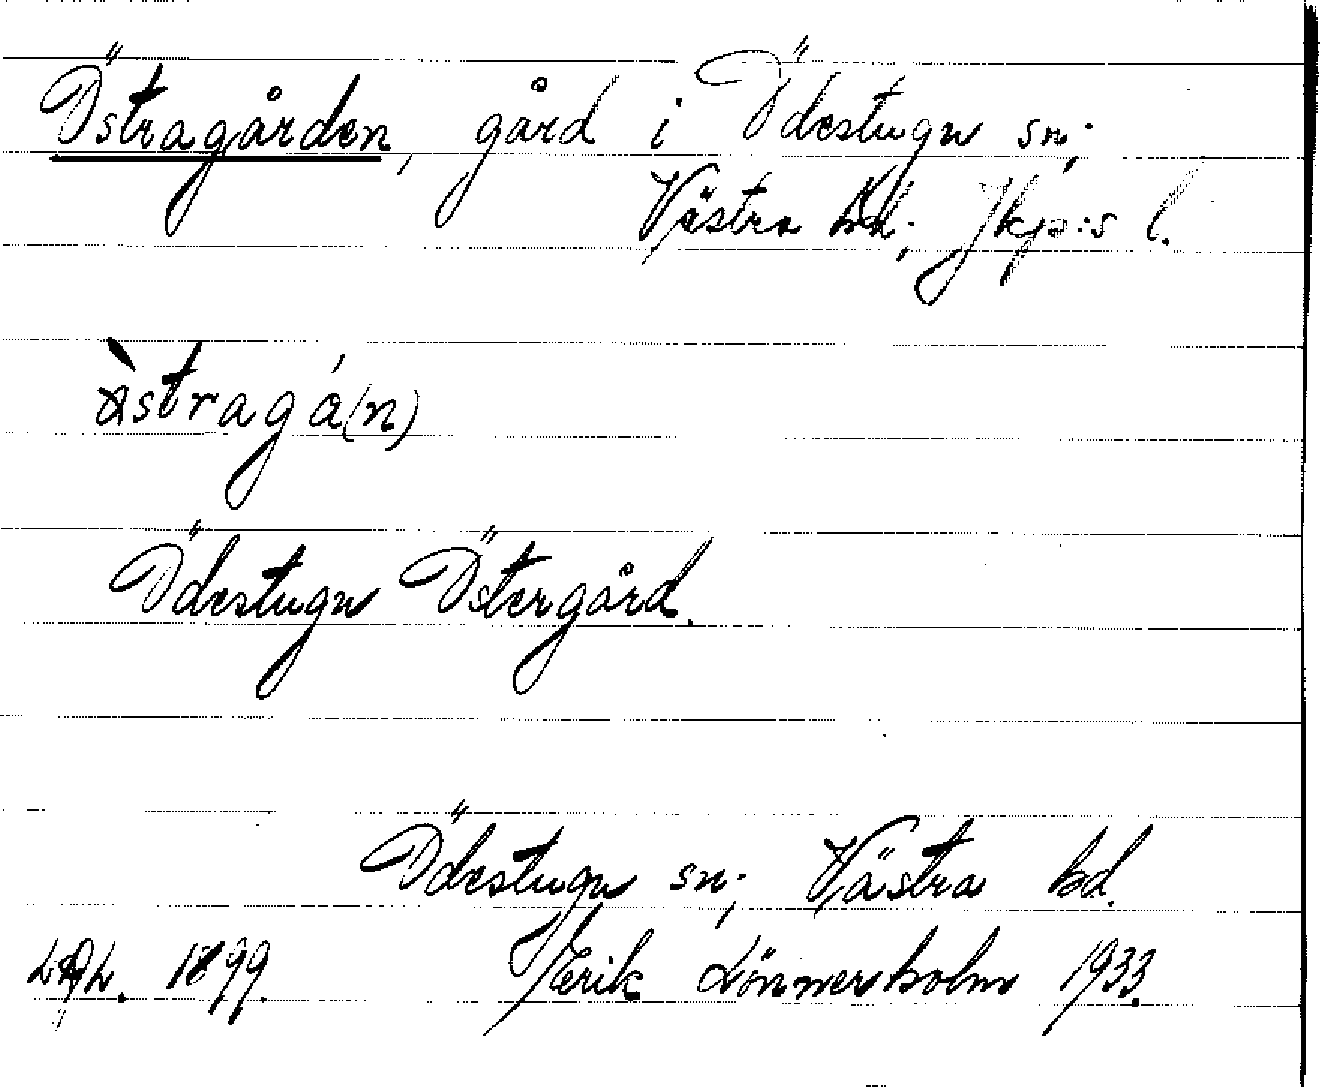 Östragården, gård i Ödestugu sn;
Västra hd; Jkp:s l.
östragá(n)
Ödestugu Östergård.
Ödestugu sn; Västra hd.
1899. Erik Lönnerholm 1933.